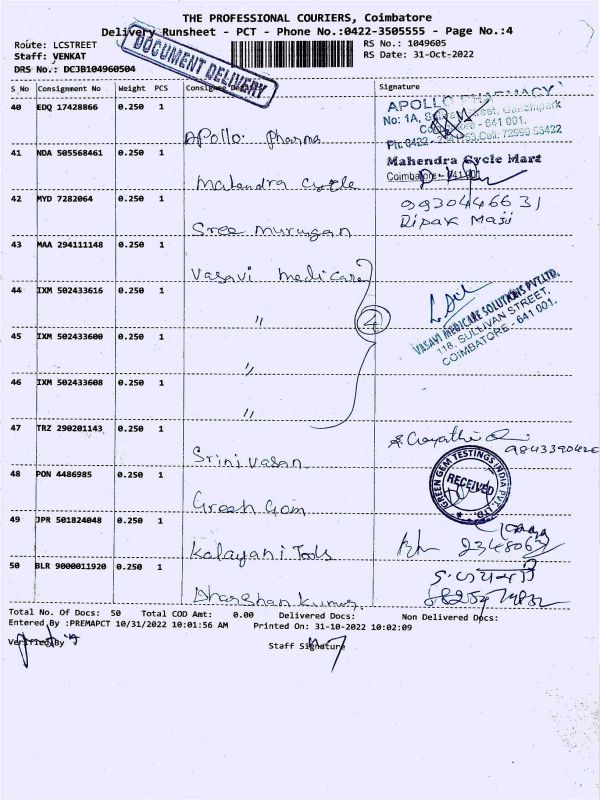 THE PROFESSIONAL COURIERS, Coimbatore
Delivery Runsheet - PCT - Phone No.:0422-3505555 - Page No.:4
Route: LCSTREET
RS No.: 1049605
Staff: VENKAT
RS Date: 31-Oct-2022
DRS No.: DCJB104960504
DOCUMENT DELIVERY
S No Consignment No Weight PCS Consignee Details Signature
40 EDQ 17428866 0.250 1
Apollo Pharma
APOLLO PHARMACY
No: 1A,
641 001.
41 NDA 505568461 0.250 1
Mahendra Cycle
Mahendra Cycle Mart
Coimbatore - 641 001
42 MYD 7282064 0.250 1
Sree murugan
9930446631
Dipak Maji
43 MAA 294111148 0.250 1
Vasavi medicare
44 IXM 502433616 0.250 1
"
4
VASAVI MEDICARE SOLUTIONS PVT LTD.
118, SULLIVAN STREET,
COIMBATORE - 641 001.
45 IXM 502433600 0.250 1
"
46 IXM 502433608 0.250 1
"
47 TRZ 290201143 0.250 1
Srinivasan
48 PON 4486985 0.250 1
Green Gem
GREEN GEM TESTINGS INDIA PVT. LTD.
RECEIVED
49 JPR 501824048 0.250 1
Kalayani Tools
50 BLR 9000011920 0.250 1
Dharshan kumar
Total No. Of Docs: 50 Total COD Amt: 0.00 Delivered Docs: Non Delivered Docs:
Entered By :PREMAPCT 10/31/2022 10:01:56 AM Printed On: 31-10-2022 10:02:09
Verified By Staff Signature